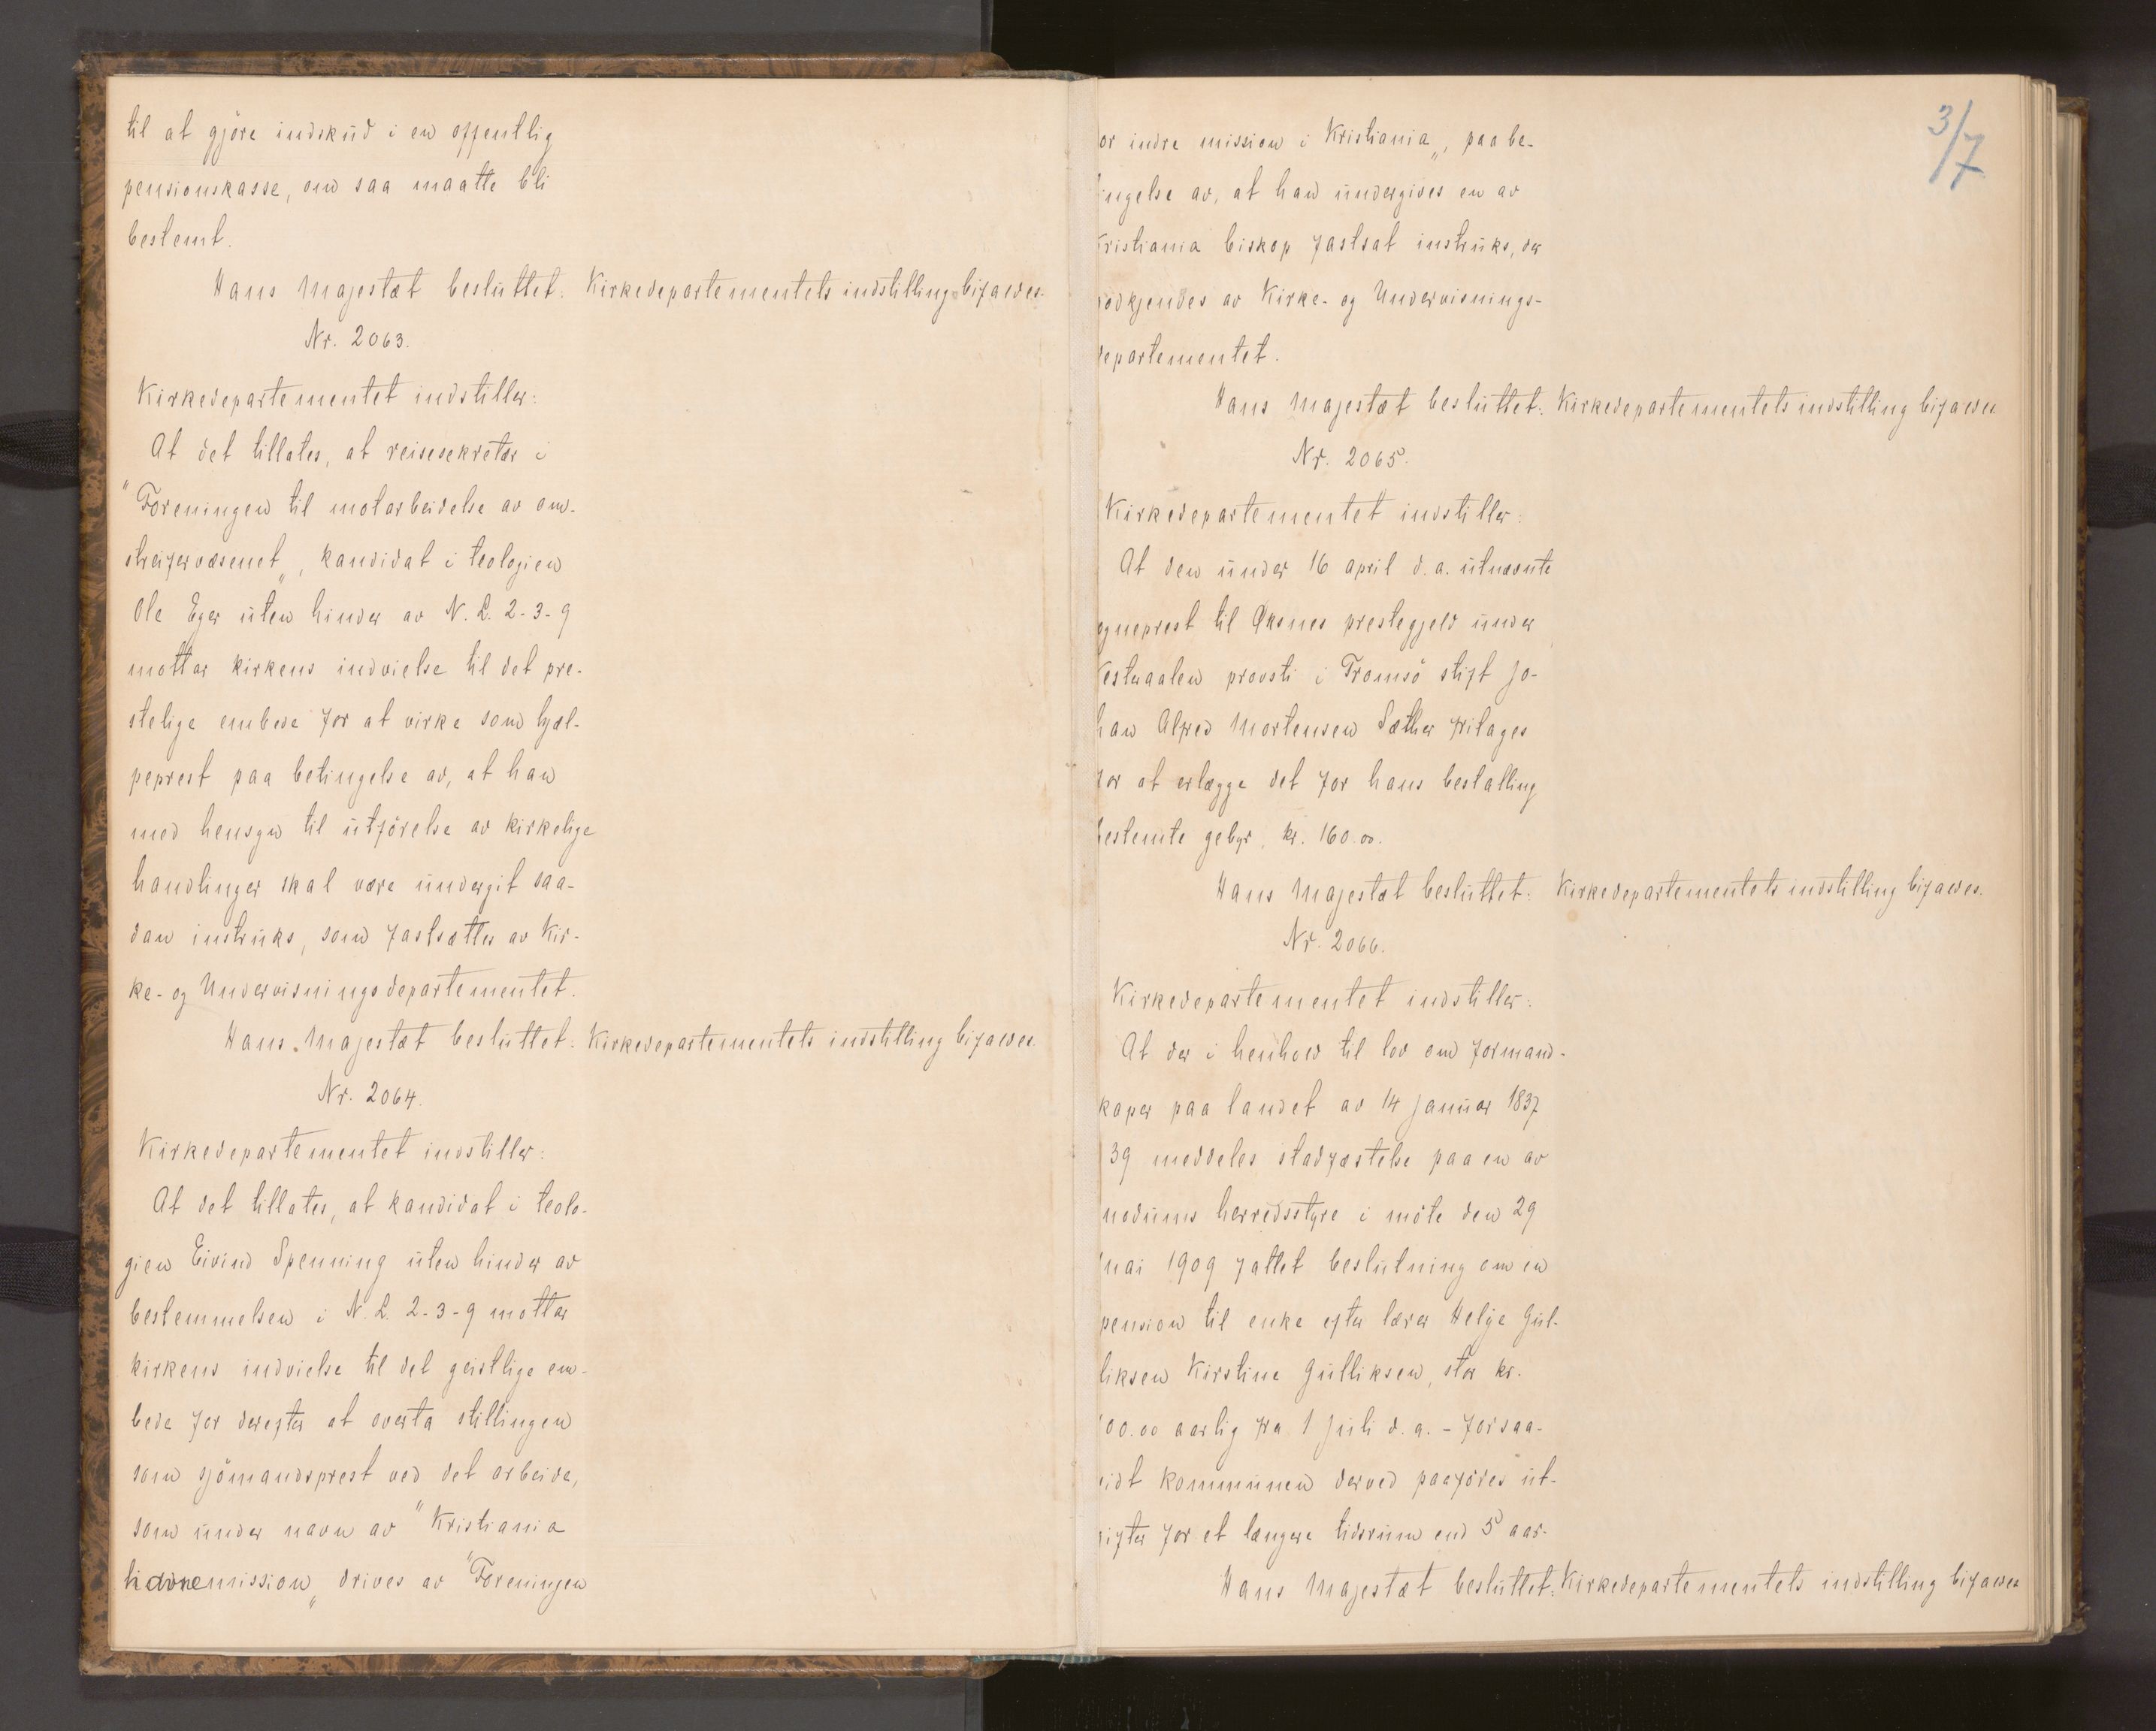 til at gjöre indskud i en offentlig
pensionskasse, om saa maatte bli
bestemt.
Hans Majestæt besluttet: Kirkedepartementets indstilling bifaldes.
Nr. 2063.
Kirkedepartementet indstiller:
At det tillates, at reisesekretær i
"Foreningen til motarbeidelse av om-
streifervæsenet„, kandidat i teologien
Ole Eger uten hinder av N. L. 2-3-9
mottar kirkens indvielse til det pre-
stelige embede for at virke som hjæl-
peprest paa betingelse av, at han
med hensyn til utförelse av kirkelige
handlinger skal være undergit saa-
dan instruks, som fastsættes av Kir-
ke- og Undervisningsdepartementet.
Hans Majestæt besluttet: Kirkedepartementets indstilling bifaldes.
Nr. 2064.
Kirkedepartementet indstiller:
At det tillates, at kandidat i teolo-
gien Eivind Spenning uten hinder av
bestemmelsen i N. L. 2-3-9 mottar
kirkens indvielse til det geistlige em-
bede for derefter at overta stillingen
som sjömandsprest ved det arbeide,
som under navn av "Kristiania
indremission„ drives av "Foreningen
3/7
or indre mission i Kristiania„, paa be-
ingelse av, at han undergives en av
ristiania biskop fastsat instruks, der
odkjendes av Kirke- og Undervisnings-
departementet.
Hans Majestæt besluttet: Kirkedepartementets indstilling bifaldes
Nr. 2065.
Kirkedepartementet indstiller:
At den under 16 april d. a. utnævnte
ogneprest til Öksnes prestegjeld under
Vesteraalen provsti i Tromsö stift Jo-
han Alfred Mortensen Sæther fritages
for at erlægge det for hans bestalling
bestemte gebyr, kr. 160.00.
Hans Majestæt besluttet: Kirkedepartementets indstilling bifaldes.
Nr. 2066.
Kirkedepartementet indstiller:
At der i henhold til lov om formand-
kaper paa landet av 14 januar 1837
39 meddeles stadfæstelse paa en av
nedums herredsstyre i möte den 29
mai 1909 fattet beslutning om en
pension til enke efter lærer Helge Gul-
liksen Kirstine Gulliksen, stor kr.
00.00 aarlig fra 1 juli d. a. - forsaa-
idt kommunen derved paaföres ut-
gifter for et længere tidsrum end 5 aar.
Hans Majestæt besluttet: Kirkedepartementets indstilling bifaldes